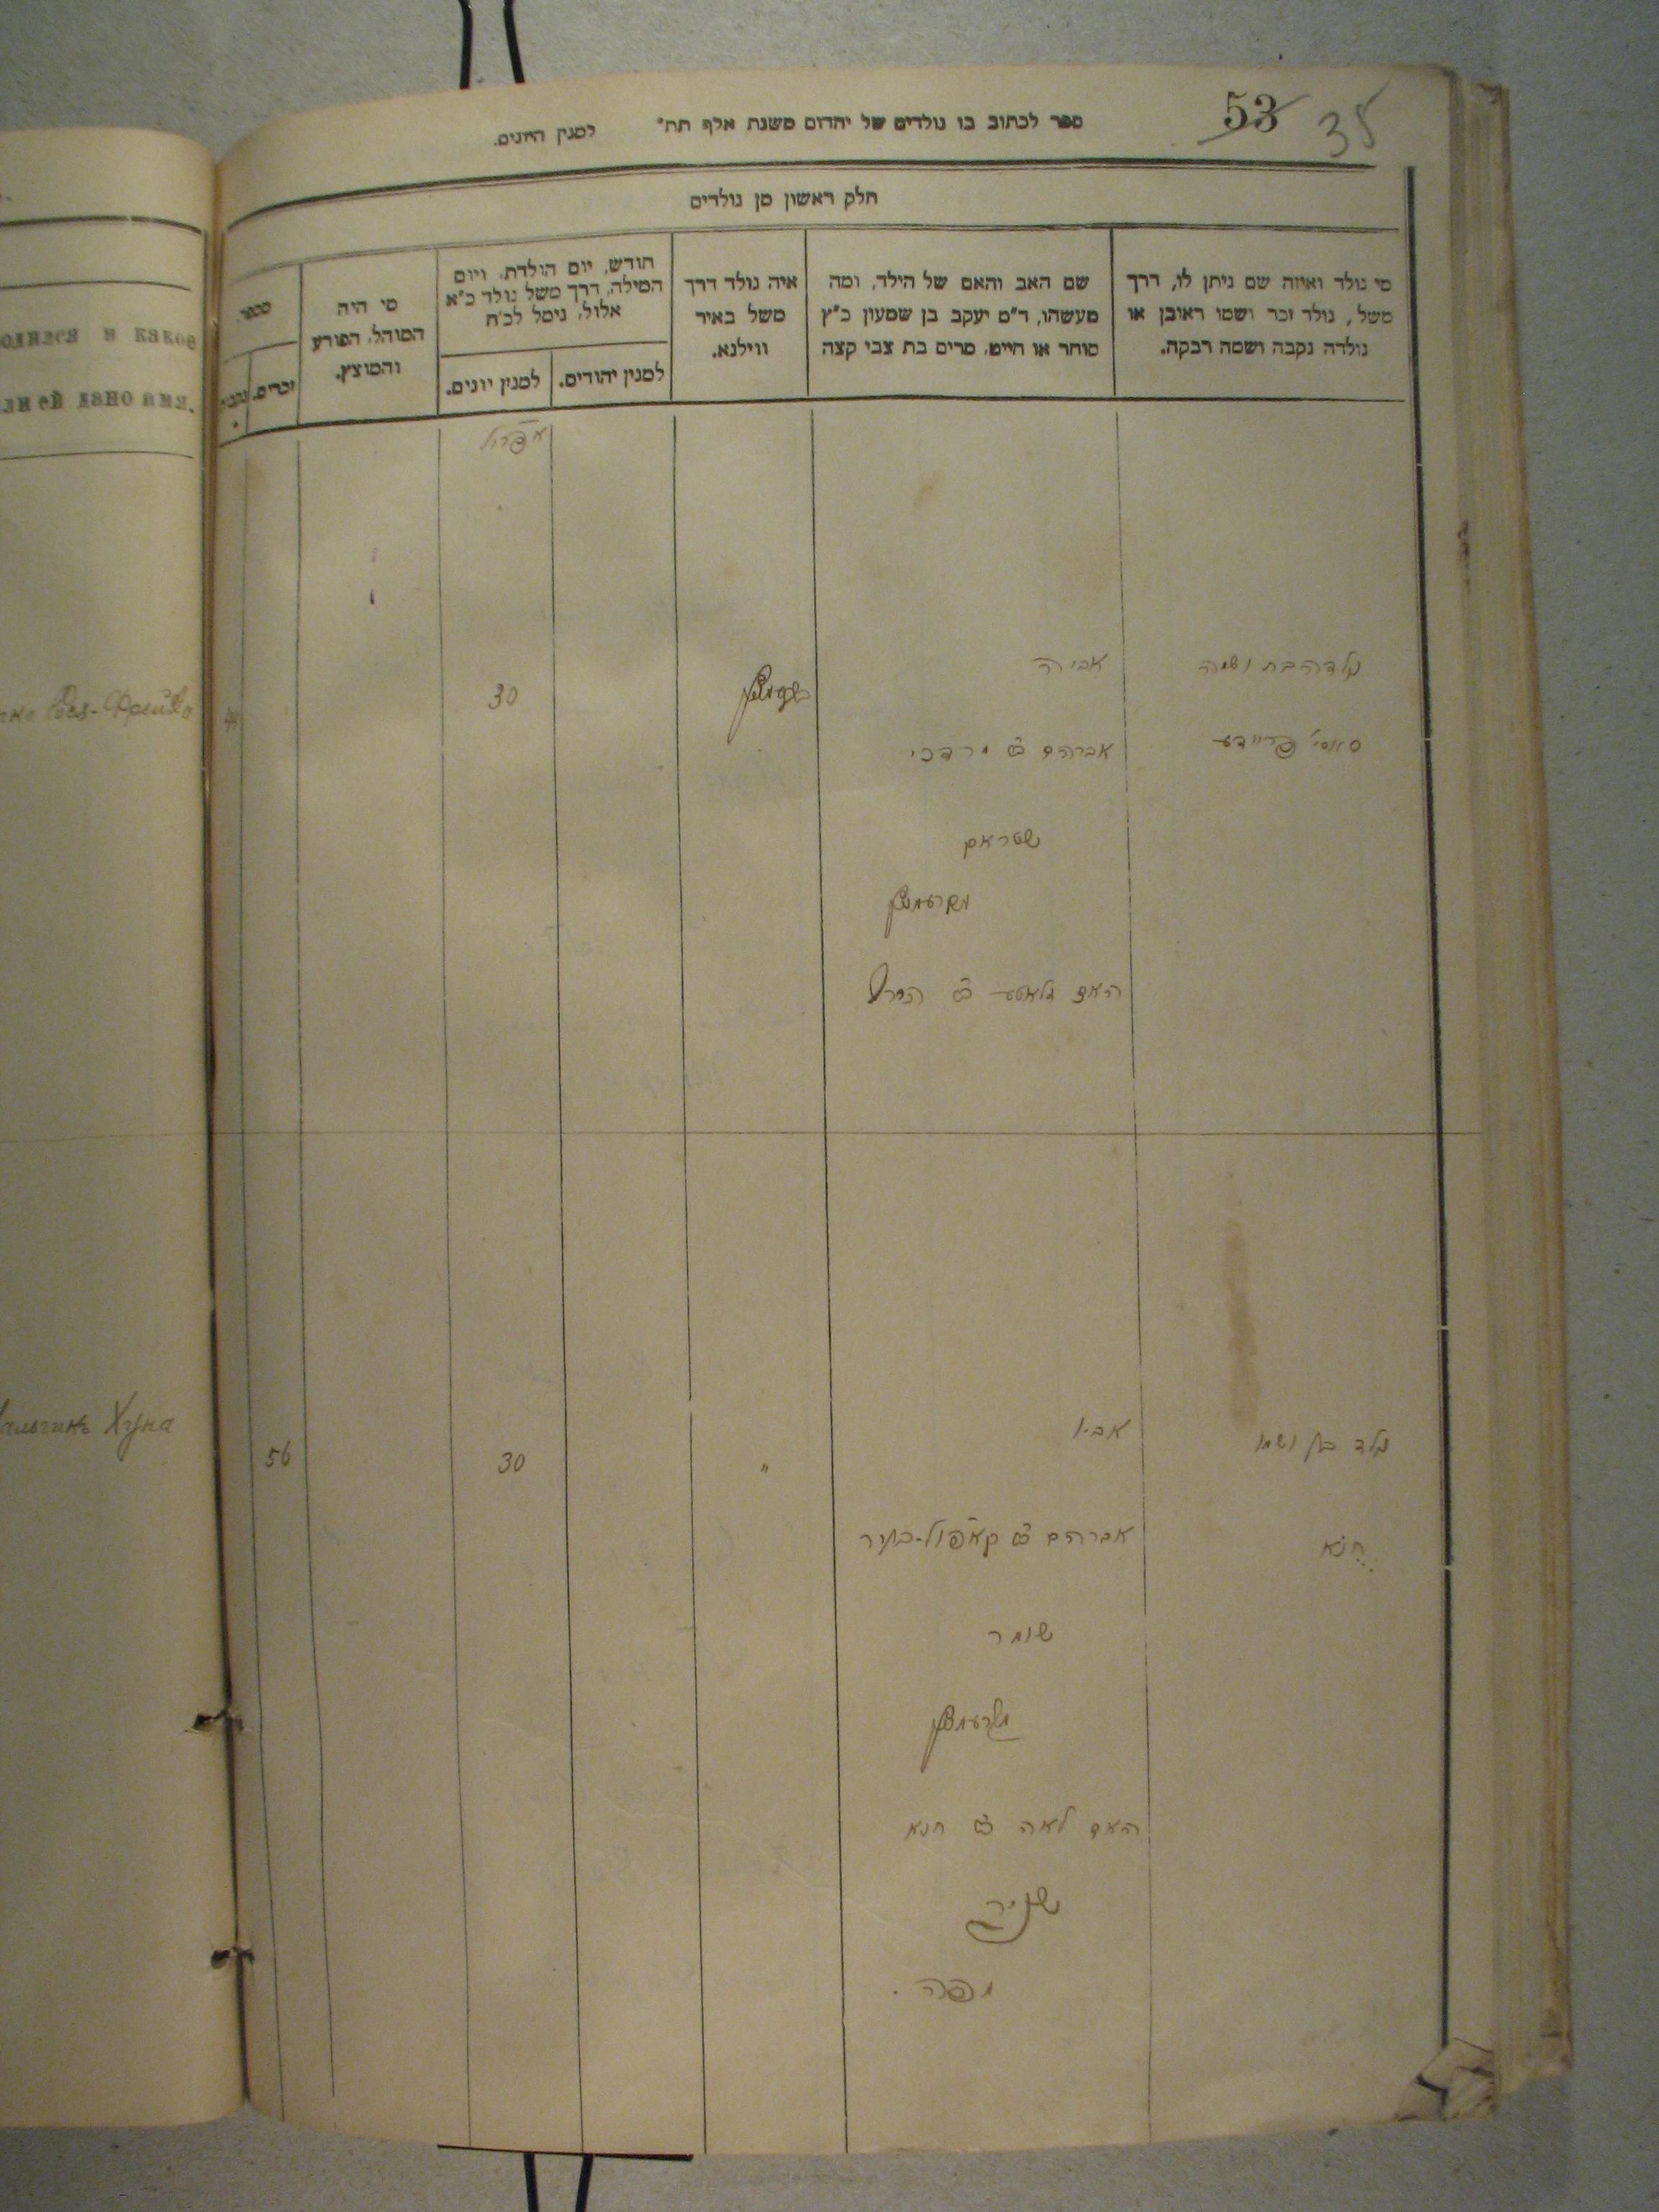 53 35
ספר לכתוב בו נולדים של יהדום משנת אלף תת״ למנין היונים.
חלק ראשון מן נולדים
מי נולד ואיזה שם ניתן לו, דרך
משל, נולד זכר ושמו ראובן או
נולדה נקבה ושמה רבקה.
שם האב והאם של הילד, ומה
מעשהו, ד״מ יעקב בן שמעון כ״ץ
סוחר או חייט, מרים בת צבי קצה
איה נולד דרך
משל באיר
ווילנא.
חודש, יום הולדת, ויום
המילה, דרך משל נולד כ״א
אלול, נימל לכ״ח
למנין יהודים.
למנין יונים.
מי היה
המוהל, הפורע
והמוצץ.
מספר
זכרים.
אפריל
נולדה בת ושמה
אביה
30
פריידע
אברהם ב״ר מרדכי
שטראם
האם זלאטע ב״ר
נולד בן ושמו
אביו
"
30
56
חנא
אברהם ב״ר קאפול-מאיר
שומר
האם לאה ב״ר חנא
родился и какое
или ей дано имя.
Фрейда
Мальчикъ Хуна